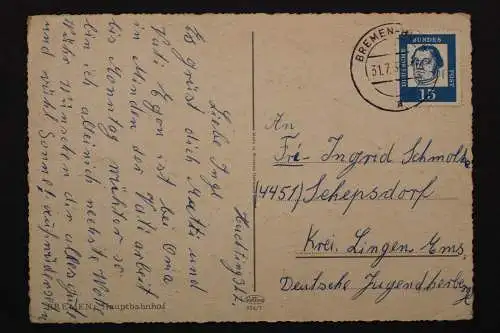 Huchting 31.7.
Liebe Inge!
Es grüst dich Mutti und
Vati. Egon ist bei Oma
in Minden der Vati arbeit
bis Montag nächter so
bin ich allein nächste Woche
Wir wünschen dir alles gute
und viehl Sonne,
BREMEN, Hauptbahnhof
BREMEN-
31.7.
a
DEUTSCHE
BUNDES
POST
15
An
Frl. Ingrid Schmolke
(4451) Schepsdorf
Krei. Lingen Ems.
Deutsche Jugendherberge